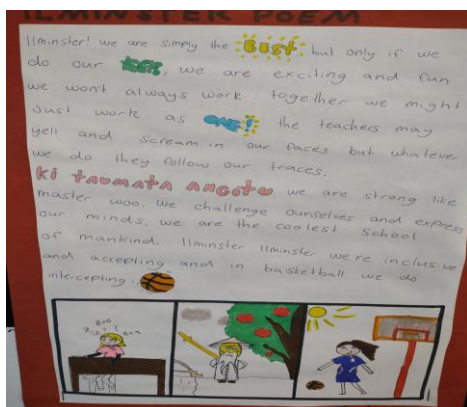 ILMINSTER POEM
Ilminster! we are simply the BEST but only if we
do our test, we are exciting and fun
we won't always work together we might
Just work as ONE! the teachers may
yell and scream in our faces but whatever
we do they follow our traces.
Ki TAUMATA ANGITU we are strong like
master woo. we challenge ourselves and express
our minds, we are the coolest School
of mankind. Ilminster Ilminster we're inclusive
and accepting and in basketball we do
intercepting.